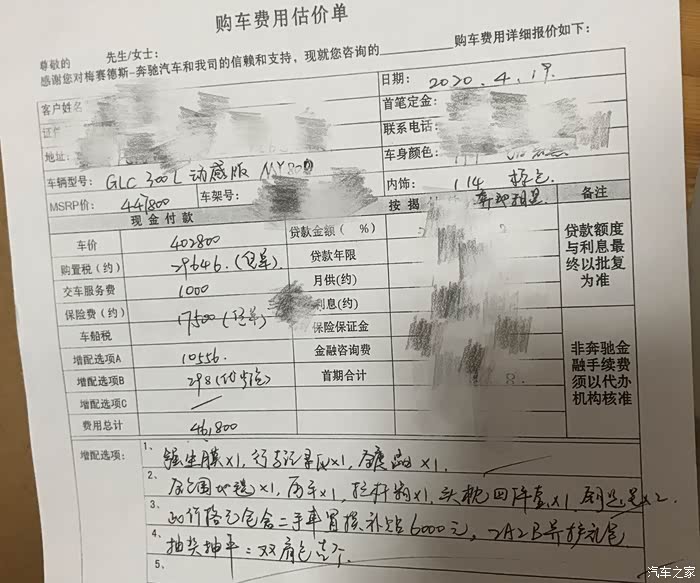 购车费用估价单
尊敬的 先生/女士：
感谢您对梅赛德斯-奔驰汽车和我司的信赖和支持，现就您咨询的 购车费用详细报价如下：
客户姓名 日期： 2020.4.19
证 首笔定金：
地址： 联系电话：
车辆型号： GLC 300L 动感版 MY800 车身颜色：
MSRP价： 441800 车架号： 内饰： 114 棕色
现金付款 按揭 备注
车价 402800 贷款金额（ %）
购置税（约） 29646.(包算) 贷款年限
交车服务费 1000 月供(约)
保险费（约） 17500(包算) 利息(约)
车船税 保险保证金
增配选项A 10556. 金融咨询费
增配选项B 298 首期合计
增配选项C
费用总计 461800
贷款额度与利息最终以批复为准
非奔驰金融手续费须以代办机构核准
增配选项：
1、 镀金膜×1，行车记录仪×1，
2、 全包围地毯×1， 拉杆箱×1，头枕四件套×1，钥匙包×2
3、 此价格已包含二手车置换补贴6000元，2A2B 礼包
4、 抽奖抽中：双肩包 个
5、
汽车之家